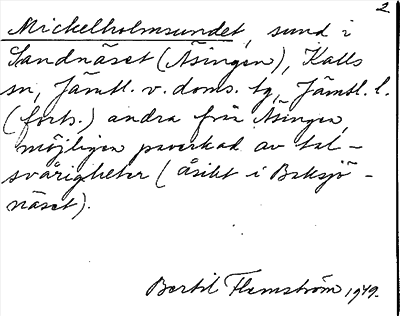 2
Mickelholmsundet, sund i
Sandnäset (Äsingen), Kalls
sn, Jämtl. v. doms. tg, Jämtl. l.
(forts.) andra från Äsingen,
möjligen påverkad av tal-
svårigheter (åsikt i Baksjö-
näset).
Bertil Flemström 1979.